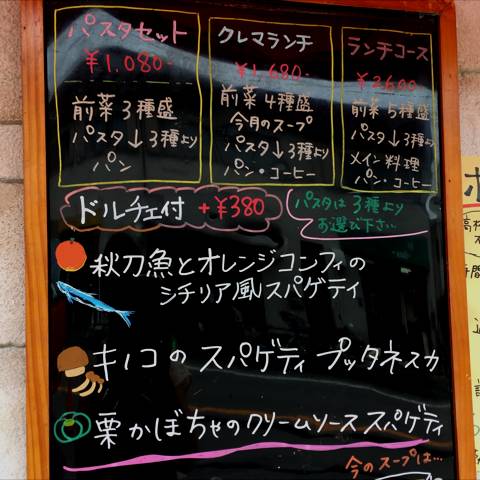 パスタセット
¥1,080-
前菜3種盛
パスタ↓3種より
パン
クレマランチ
¥1,680-
前菜4種盛
今月のスープ
パスタ↓3種より
パン・コーヒー
ランチコース
¥2600-
前菜5種盛
パスタ↓3種より
メイン料理
パン・コーヒー
ドルチェ付 +¥380
パスタは3種より
お選び下さい
秋刀魚とオレンジコンフィの
シチリア風スパゲティ
キノコのスパゲティプッタネスカ
栗かぼちゃのクリームソーススパゲティ
今のスープは…